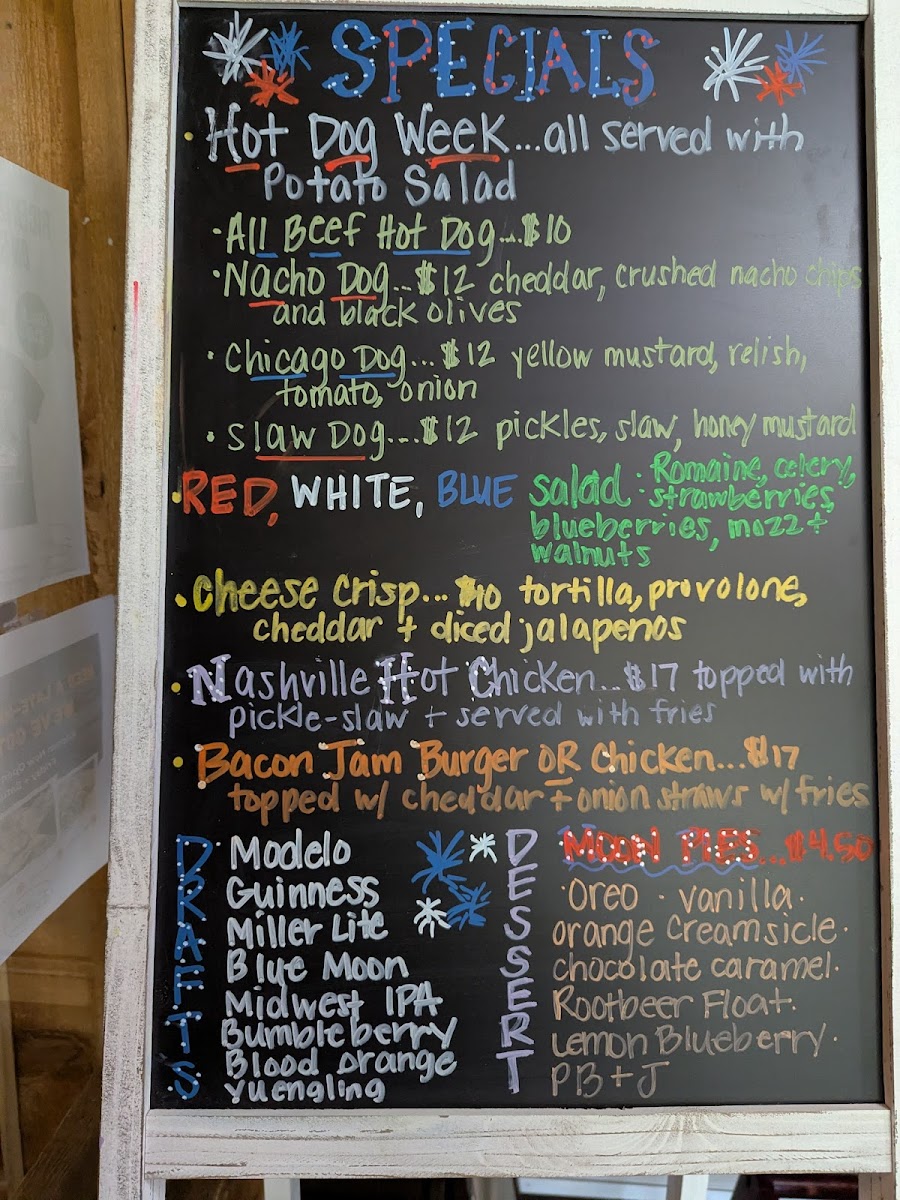 SPECIALS
• Hot Dog Week...all served with
Potato Salad
• All Beef Hot Dog...$10
• Nacho Dog...$12 cheddar, crushed nacho chips
and black olives
• Chicago Dog...$12 yellow mustard, relish,
tomato, onion
• Slaw Dog...$12 pickles, slaw, honey mustard
• RED, WHITE, BLUE salad · Romaine, celery,
strawberries,
blueberries, mozz +
walnuts
• Cheese Crisp...$10 tortilla, provolone,
cheddar + diced jalapenos
• Nashville Hot Chicken...$17 topped with
pickle-slaw + served with fries
• Bacon Jam Burger OR Chicken...$17
topped w/ cheddar + onion straws w/ fries
DRAFTS
Modelo
Guinness
Miller Lite
Blue Moon
Midwest IPA
Bumbleberry
Blood orange
Yuengling
DESSERT
MOON PIES...$4.50
· Oreo · vanilla ·
orange creamsicle ·
chocolate caramel ·
Rootbeer Float ·
Lemon Blueberry ·
PB + J